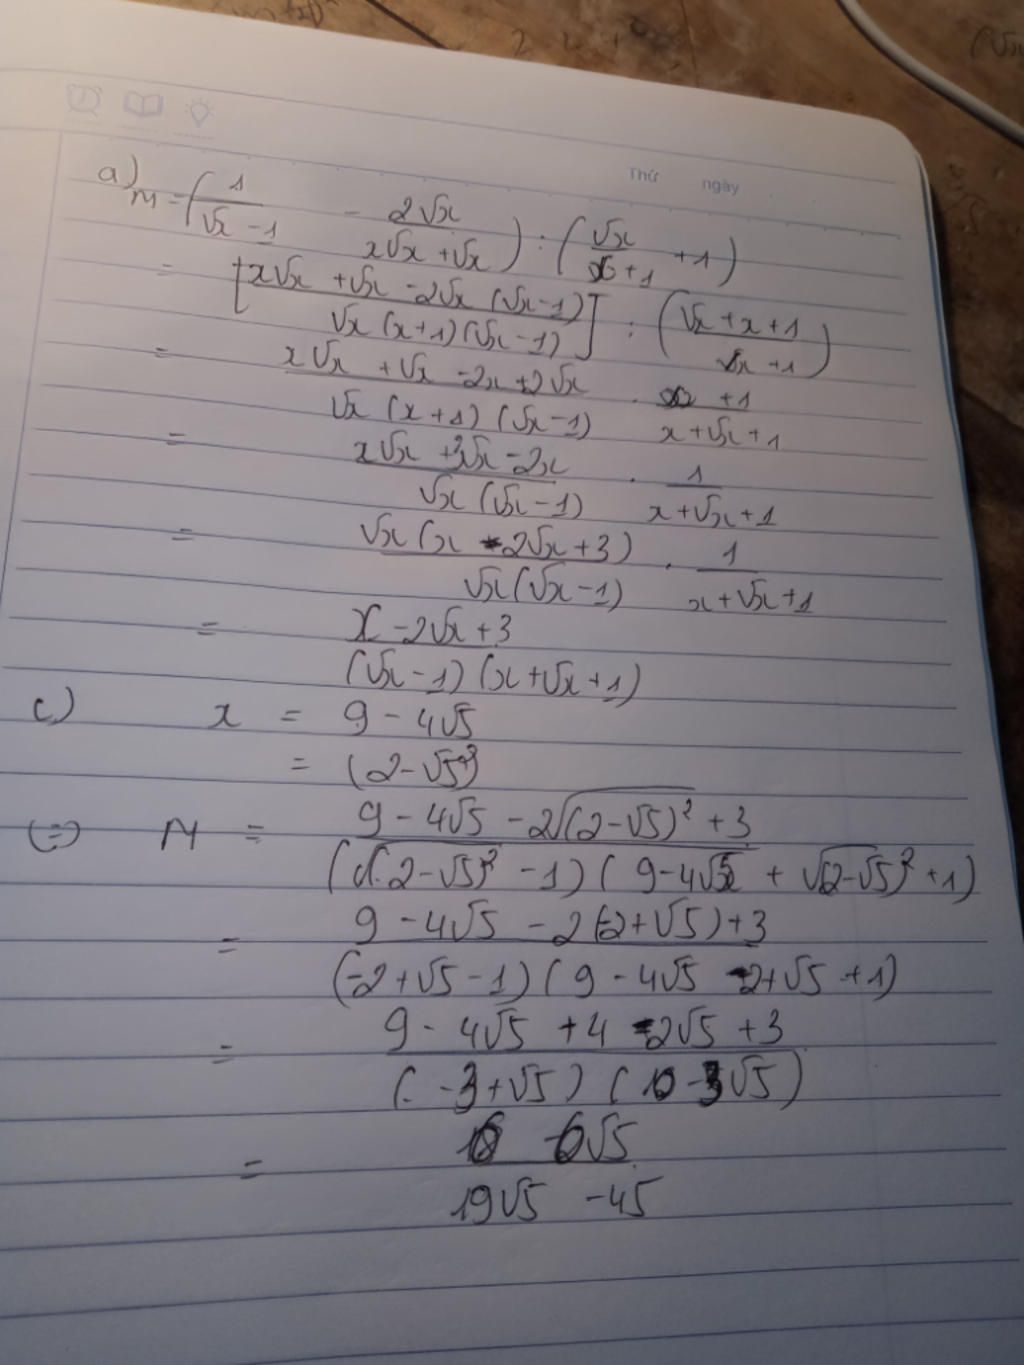 Thứ ngày
a) M = (1/(√x - 1) - 2√x/(x√x + √x)) : (√x/(x + 1) + 1)
= [(x√x + √x - 2√x (√x - 1))/(√x (x + 1)(√x - 1))] : ((√x + x + 1)/(x + 1))
= (x√x + √x - 2x + 2√x)/(√x (x + 1)(√x - 1)) . (x + 1)/(x + √x + 1)
= (x√x + 3√x - 2x)/(√x (√x - 1)) . 1/(x + √x + 1)
= (√x(x - 2√x + 3))/(√x(√x - 1)) . 1/(x + √x + 1)
= (x - 2√x + 3)/((√x - 1)(x + √x + 1))
c) x = 9 - 4√5
= (2 - √5)²
(=) M = (9 - 4√5 - 2√(2 - √5)² + 3)/((√(2 - √5)² - 1)(9 - 4√5 + √(2 - √5)² + 1))
= (9 - 4√5 - 2(-2 + √5) + 3)/((-2 + √5 - 1)(9 - 4√5 - 2 + √5 + 1))
= (9 - 4√5 + 4 - 2√5 + 3)/((-3 + √5)( - 3√5))
= ( - 6√5)/(19√5 - 45)